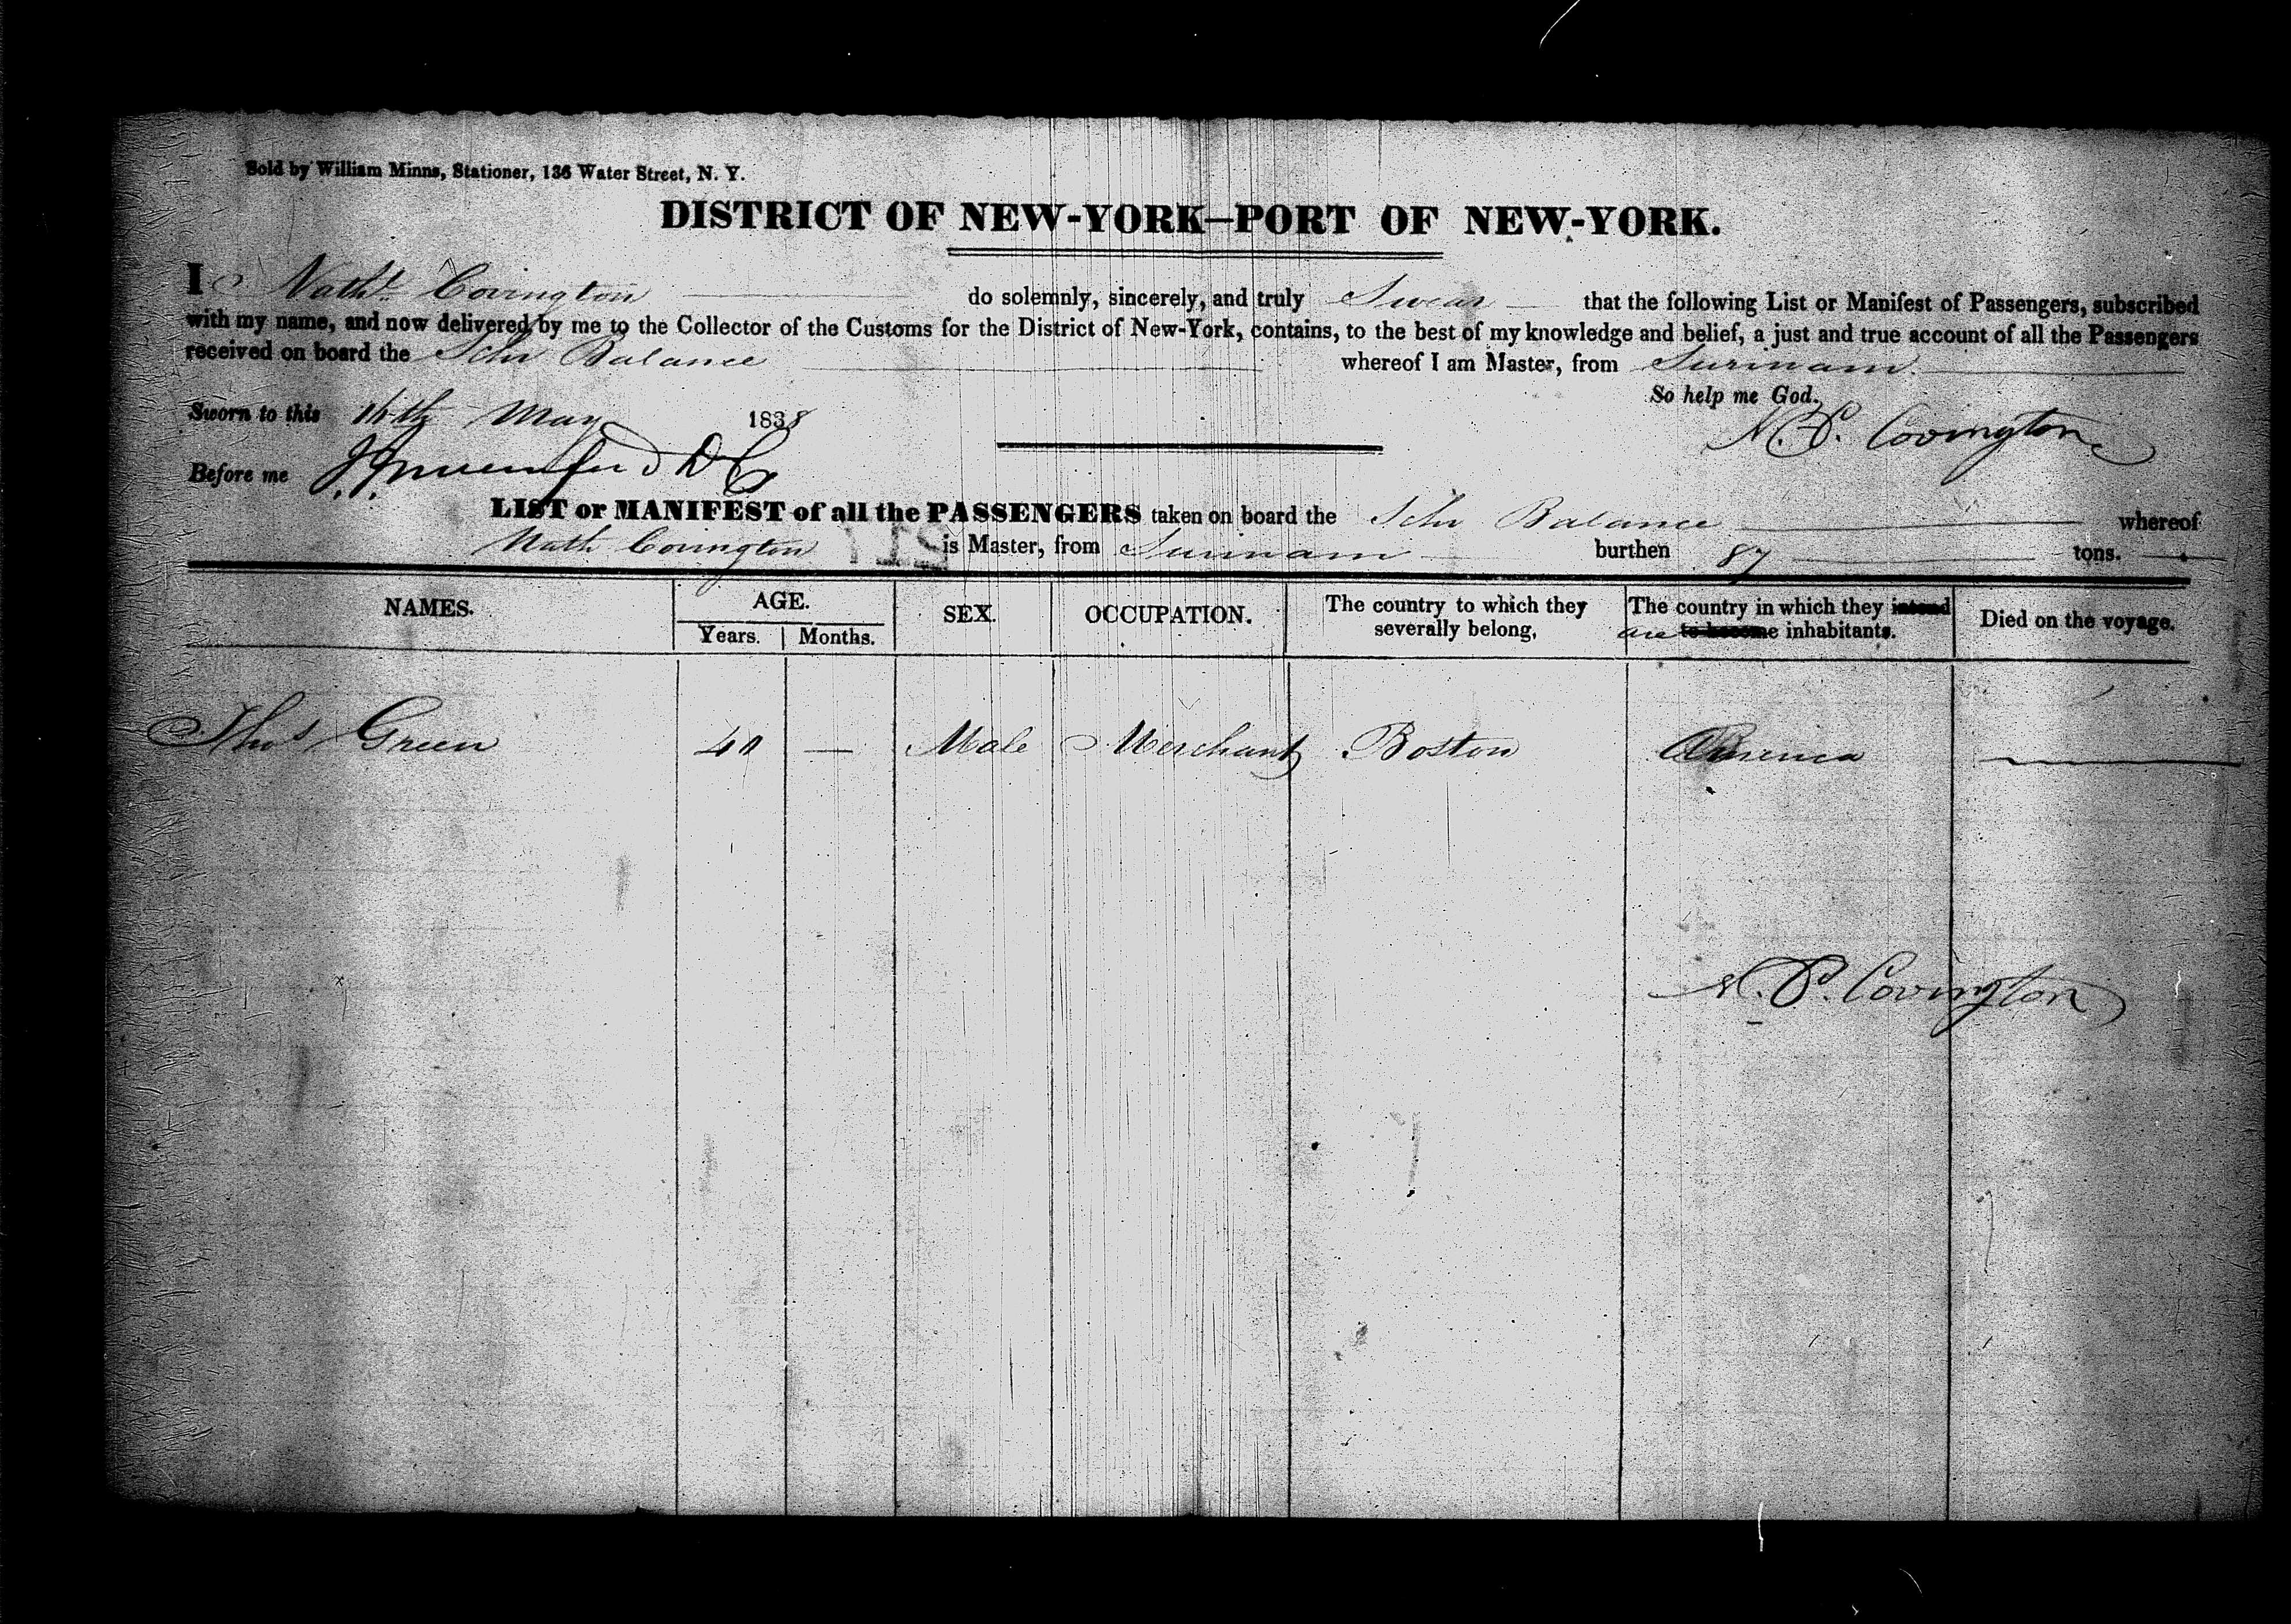 Sold by William Minns, Stationer, 136 Water Street, N. Y.
DISTRICT OF NEW-YORK—PORT OF NEW-YORK.
I Nathl Covington do solemnly, sincerely, and truly Swear that the following List or Manifest of Passengers, subscribed
with my name, and now delivered by me to the Collector of the Customs for the District of New-York, contains, to the best of my knowledge and belief, a just and true account of all the Passengers
received on board the Schr Balance whereof I am Master, from Surinam
So help me God.
Sworn to this 16th May 1838
N. P. Covington
Before me
LIST or MANIFEST of all the PASSENGERS taken on board the Schr Balance whereof
Nath Covington is Master, from Surinam burthen 87 tons.
NAMES. AGE. SEX. OCCUPATION. The country to which they severally belong. The country in which they intend to become inhabitants. Died on the voyage.
Years. Months. are
Thos Green 40 — Male Merchant Boston America
N. P. Covington